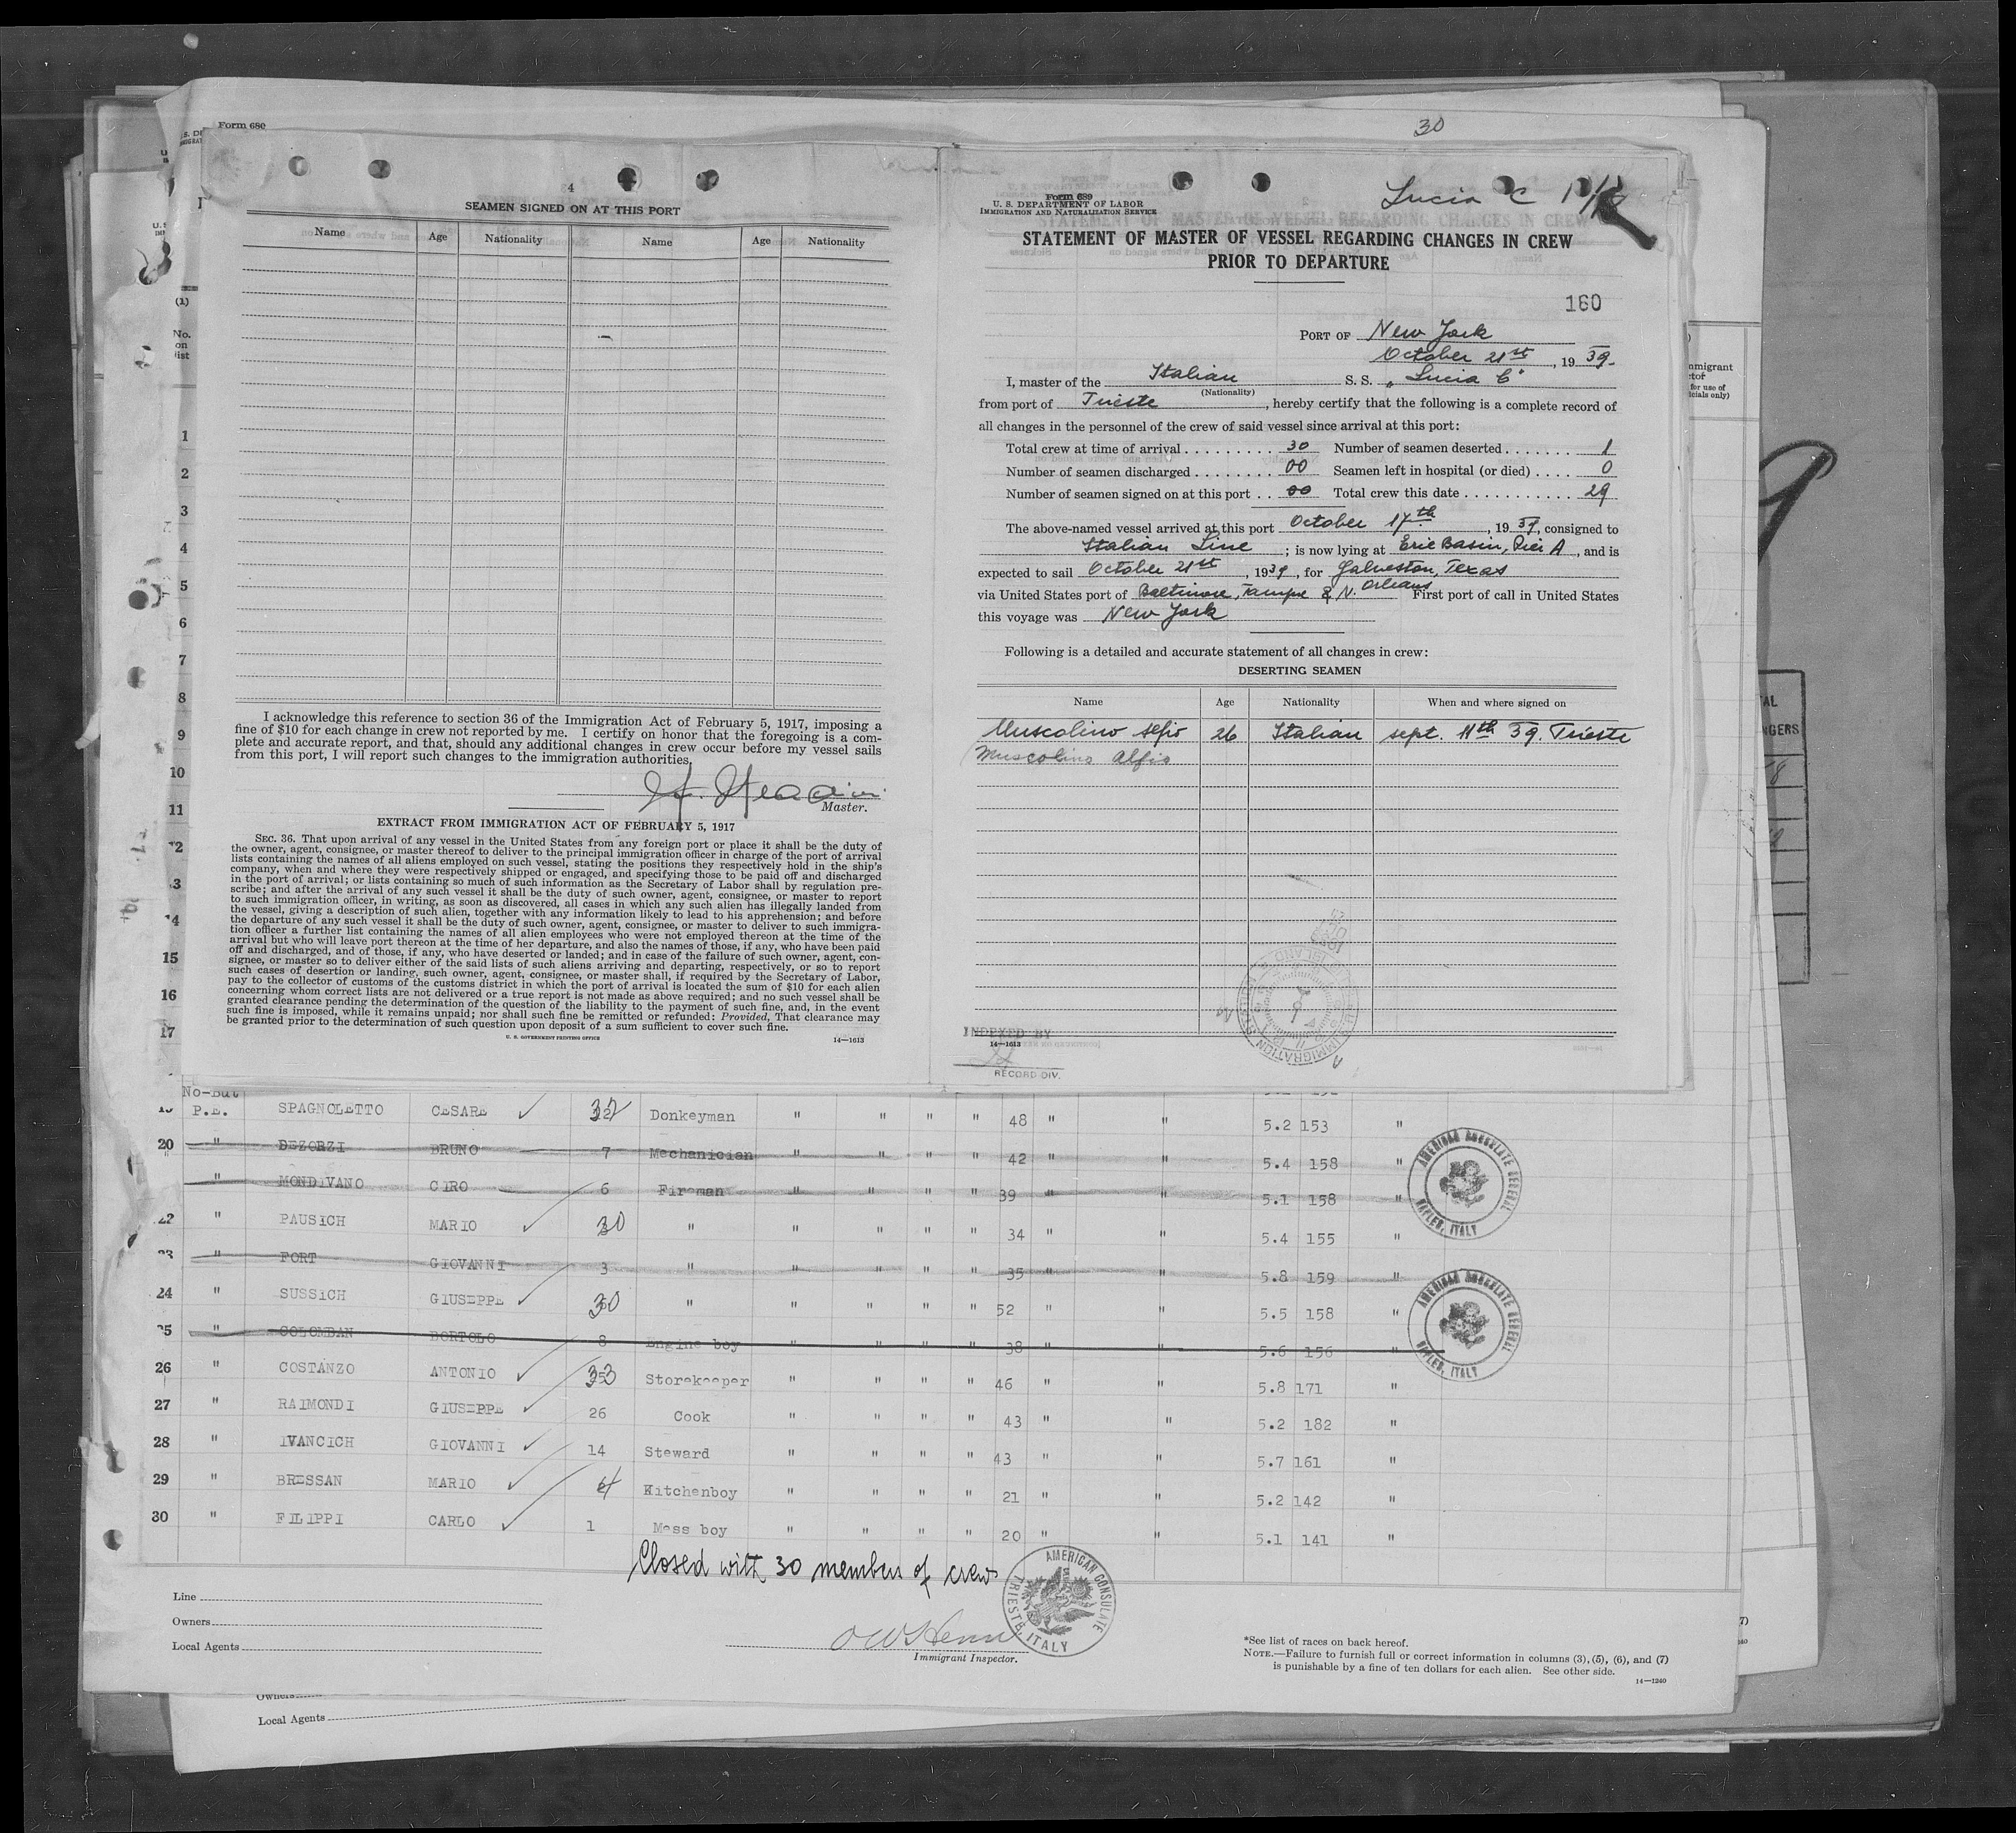 Form 680
30
4
SEAMEN SIGNED ON AT THIS PORT
Name Age Nationality Name Age Nationality
I acknowledge this reference to section 36 of the Immigration Act of February 5, 1917, imposing a
fine of $10 for each change in crew not reported by me. I certify on honor that the foregoing is a com-
plete and accurate report, and that, should any additional changes in crew occur before my vessel sails
from this port, I will report such changes to the immigration authorities.
Master.
EXTRACT FROM IMMIGRATION ACT OF FEBRUARY 5, 1917
SEC. 36. That upon arrival of any vessel in the United States from any foreign port or place it shall be the duty of
the owner, agent, consignee, or master thereof to deliver to the principal immigration officer in charge of the port of arrival
lists containing the names of all aliens employed on such vessel, stating the positions they respectively hold in the ship's
company, when and where they were respectively shipped or engaged, and specifying those to be paid off and discharged
in the port of arrival; or lists containing so much of such information as the Secretary of Labor shall by regulation pre-
scribe; and after the arrival of any such vessel it shall be the duty of such owner, agent, consignee, or master to report
to such immigration officer, in writing, as soon as discovered, all cases in which any such alien has illegally landed from
the vessel, giving a description of such alien, together with any information likely to lead to his apprehension; and before
the departure of any such vessel it shall be the duty of such owner, agent, consignee, or master to deliver to such immigra-
tion officer a further list containing the names of all alien employees who were not employed thereon at the time of the
arrival but who will leave port thereon at the time of her departure, and also the names of those, if any, who have been paid
off and discharged, and of those, if any, who have deserted or landed; and in case of the failure of such owner, agent, con-
signee, or master so to deliver either of the said lists of such aliens arriving and departing, respectively, or so to report
such cases of desertion or landing, such owner, agent, consignee, or master shall, if required by the Secretary of Labor,
pay to the collector of customs of the customs district in which the port of arrival is located the sum of $10 for each alien
concerning whom correct lists are not delivered or a true report is not made as above required; and no such vessel shall be
granted clearance pending the determination of the question of the liability to the payment of such fine, and, in the event
such fine is imposed, while it remains unpaid; nor shall such fine be remitted or refunded: Provided, That clearance may
be granted prior to the determination of such question upon deposit of a sum sufficient to cover such fine.
U. S. GOVERNMENT PRINTING OFFICE 14—1613
Form 689
U. S. DEPARTMENT OF LABOR
IMMIGRATION AND NATURALIZATION SERVICE
Lucia C
STATEMENT OF MASTER OF VESSEL REGARDING CHANGES IN CREW
PRIOR TO DEPARTURE
160
PORT OF New York
October 21st, 1939.
I, master of the Italian S. S. "Lucia C"
(Nationality)
from port of Trieste, hereby certify that the following is a complete record of
all changes in the personnel of the crew of said vessel since arrival at this port:
Total crew at time of arrival 30 Number of seamen deserted 1
Number of seamen discharged 00 Seamen left in hospital (or died) 0
Number of seamen signed on at this port 00 Total crew this date 29
The above-named vessel arrived at this port October 17th, 1939, consigned to
Italian Line; is now lying at Erie Basin, Pier A, and is
expected to sail October 21st, 1939, for Galveston, Texas
via United States port of Baltimore, Tampe & N. Orleans First port of call in United States
this voyage was New York
Following is a detailed and accurate statement of all changes in crew:
DESERTING SEAMEN
Name Age Nationality When and where signed on
Muscolino Alfio 26 Italian sept. 11th 39. Trieste
Muscolino Alfio
INDEXED BY
14—1613
RECORD DIV.
(1)
No.
on
list
1
2
3
4
5
6
7
8
9
10
11
15
16
17
No-But
P.E. SPAGNOLETTO CESARE 32 Donkeyman " " " " 48 " " 5.2 153 "
20 " DEZORZI BRUNO 7 Mechanician " " " " 42 " " 5.4 158 "
" MONDIVANO CIRO 6 Fireman " " " " 39 " " 5.1 158 "
22 " PAUSICH MARIO 30 " " " " " 34 " " 5.4 155 "
23 " FORT GIOVANNI 3 " " " " " 35 " " 5.8 159 "
24 " SUSSICH GIUSEPPE 30 " " " " " 52 " " 5.5 158 "
25 " COLOMBAN BORTOLO 8 Engine boy " " " " 38 " " 5.6 156 "
26 " COSTANZO ANTONIO 33 Storekeeper " " " " 46 " " 5.8 171 "
27 " RAIMONDI GIUSEPPE 26 Cook " " " " 43 " " 5.2 182 "
28 " IVANCICH GIOVANNI 14 Steward " " " " 43 " " 5.7 161 "
29 " BRESSAN MARIO 4 Kitchenboy " " " " 21 " " 5.2 142 "
30 " FILIPPI CARLO 1 Mess boy " " " " 20 " " 5.1 141 "
AMERICAN CONSULATE GENERAL NAPLES, ITALY
AMERICAN CONSULATE GENERAL NAPLES, ITALY
Closed with 30 members of crew
AMERICAN CONSULATE TRIESTE, ITALY
Line
Owners
Local Agents
Immigrant Inspector.
*See list of races on back hereof.
NOTE.—Failure to furnish full or correct information in columns (3), (5), (6), and (7)
is punishable by a fine of ten dollars for each alien. See other side.
14—1240
Owners
Local Agents